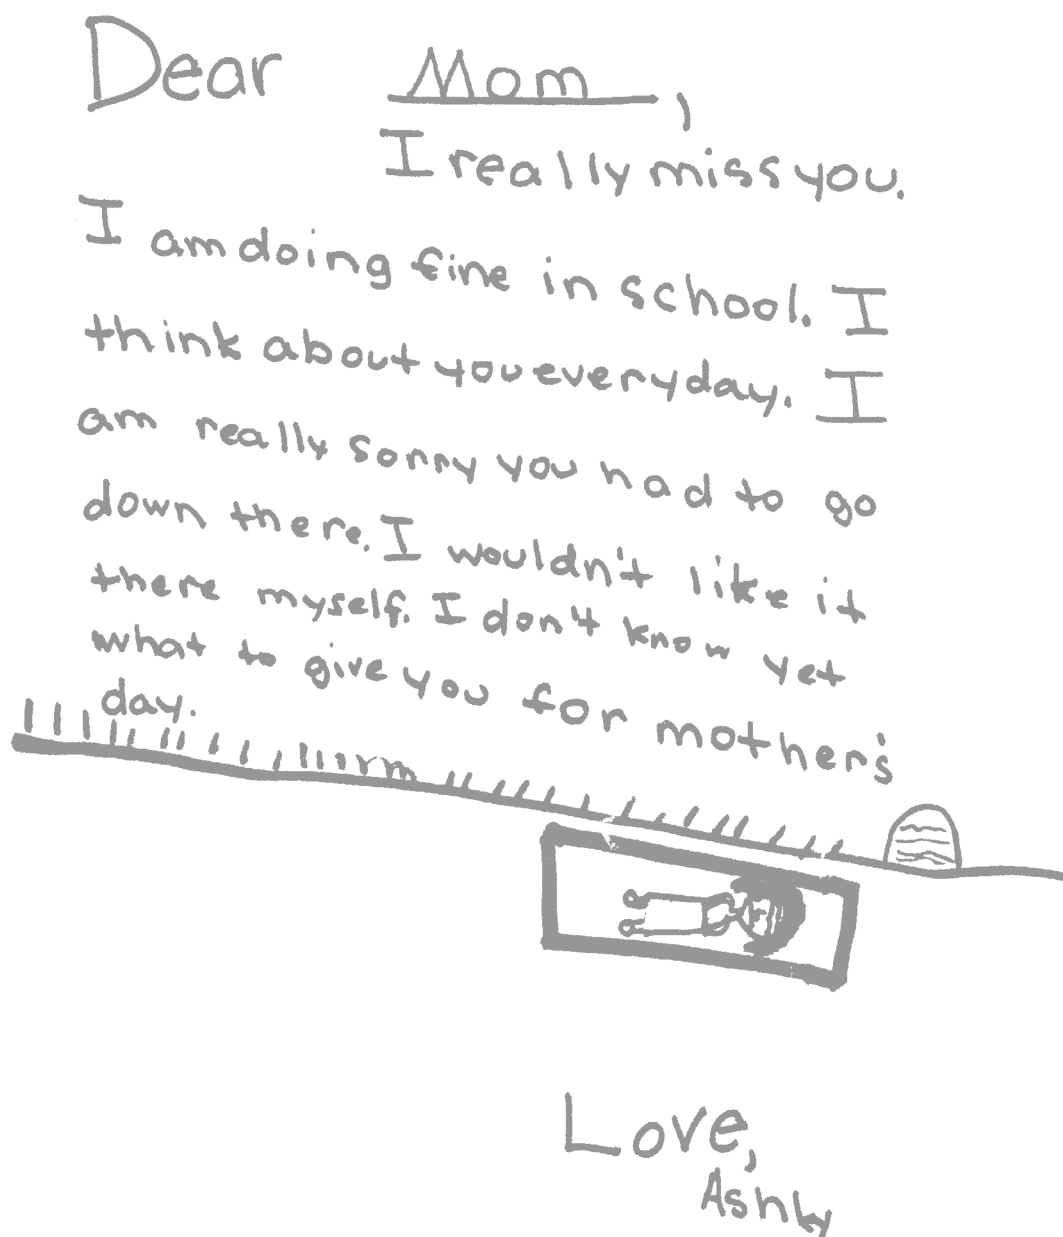 Dear Mom,
I really miss you.
I am doing fine in school. I
think about you everyday. I
am really sorry you had to go
down there. I wouldn't like it
there myself. I don't know yet
what to give you for mother's
day.
Love,
Ashly